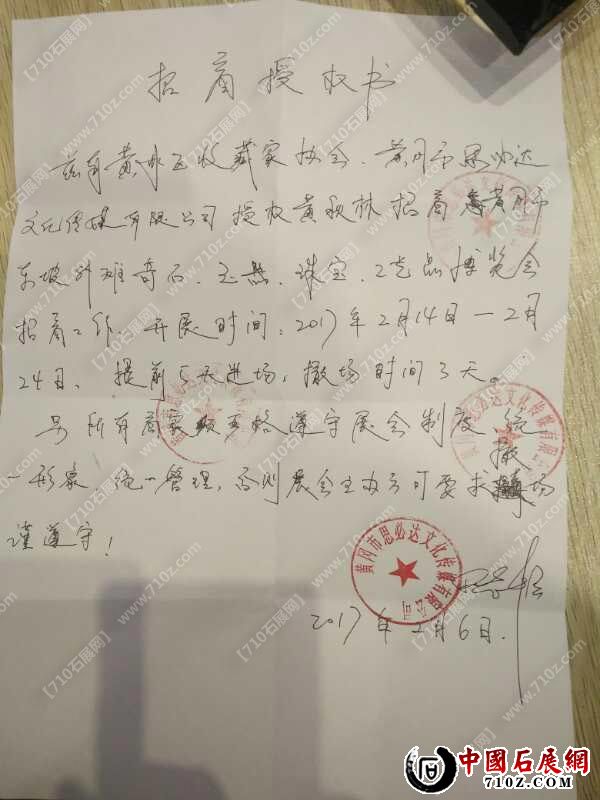 招商授权书
兹有黄冈玉收藏家协会、黄冈市思必达
文化传媒有限公司授权黄秋林招商 黄冈市
东坡 奇石、玉器、珠宝、工艺品博览会
招商工作，开展时间：2017年2月14日—2月
24日、提前5天进场，撤场时间3天。
另所有商家须严格遵守展会制度 统
一形象 统一管理，否则展会主办方可要求撤场
谨遵守！
黄冈市思必达文化传媒有限公司
2017年2月6日.
中國石展網
710Z.COM
【710石展网】
www.710z.com